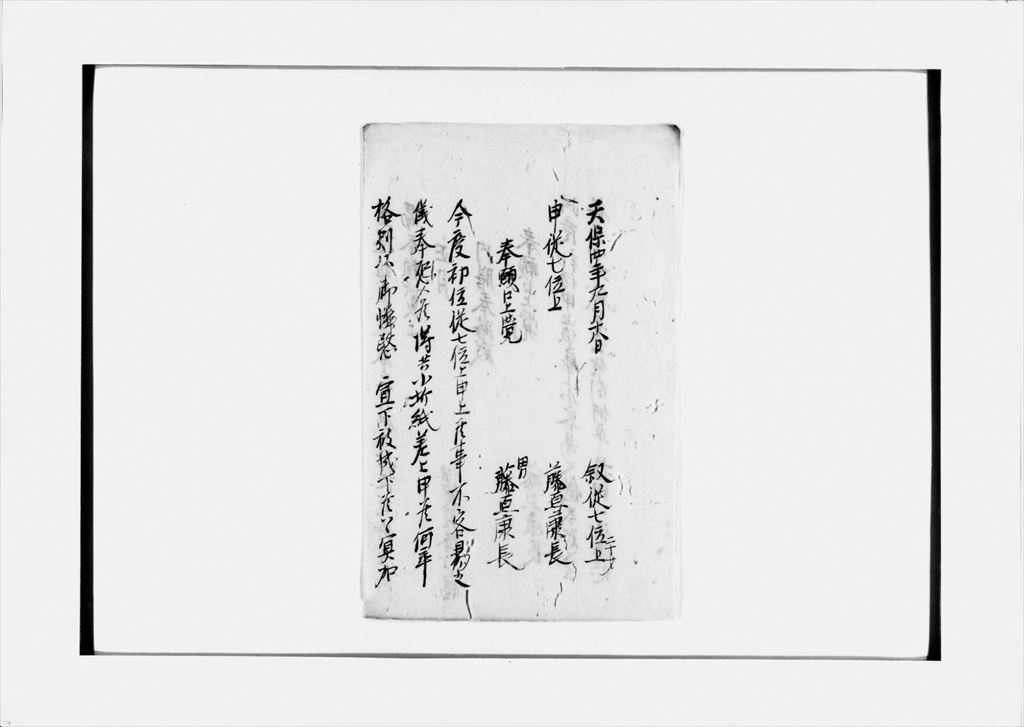 天保四年九月廿八日 叙従七位上 二十七才
申従七位上 藤原康長
奉願口上覚 男 藤原康長
今度初位従七位上申上候事不容易之
儀奉恐入候得共小折紙差上申候何卒
格別之御憐愍 宣下被成下候ハヽ冥加